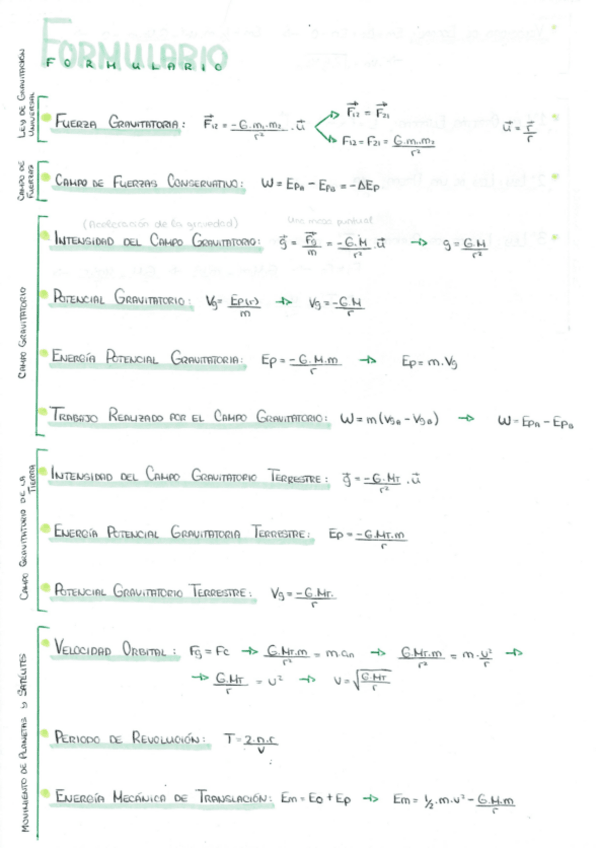 FORMULARIO
FORMULARIO
LEY DE GRAVITACIÓN UNIVERSAL
FUERZA GRAVITATORIA: F⃗₁₂ = -G.m₁.m₂/r² . u⃗
F⃗₁₂ = F⃗₂₁
F₁₂ = F₂₁ = G.m₁.m₂/r²
u⃗ = r⃗/r
CAMPO DE FUERZAS
CAMPO DE FUERZAS CONSERVATIVO: W = EpA - EpB = -ΔEp
CAMPO GRAVITATORIO
(Aceleración de la gravedad)
Una masa puntual
INTENSIDAD DEL CAMPO GRAVITATORIO: g⃗ = F⃗g/m = -G.M/r² . u⃗ → g = G.M/r²
POTENCIAL GRAVITATORIO: Vg = Ep(r)/m → Vg = -G.M/r
ENERGÍA POTENCIAL GRAVITATORIA: Ep = -G.M.m/r → Ep = m.Vg
TRABAJO REALIZADO POR EL CAMPO GRAVITATORIO: W = m(Vg - Vg) → W = EpA - EpB
CAMPO GRAVITATORIO DE LA TIERRA
INTENSIDAD DEL CAMPO GRAVITATORIO TERRESTRE: g⃗ = -G.MT/r² . u⃗
ENERGÍA POTENCIAL GRAVITATORIA TERRESTRE: Ep = -G.MT.m/r
POTENCIAL GRAVITATORIO TERRESTRE: Vg = -G.MT/r
MOVIMIENTO DE PLANETAS y SATÉLITES
VELOCIDAD ORBITAL: Fg = Fc → G.MT.m/r² = m.an → G.MT.m/r² = m.v²/r →
→ G.MT/r = v² → v = √G.MT/r
PERIODO DE REVOLUCIÓN: T = 2.π.r/v
ENERGÍA MECÁNICA DE TRANSLACIÓN: Em = Eo + Ep → Em = 1/2.m.v² - G.M.m/r